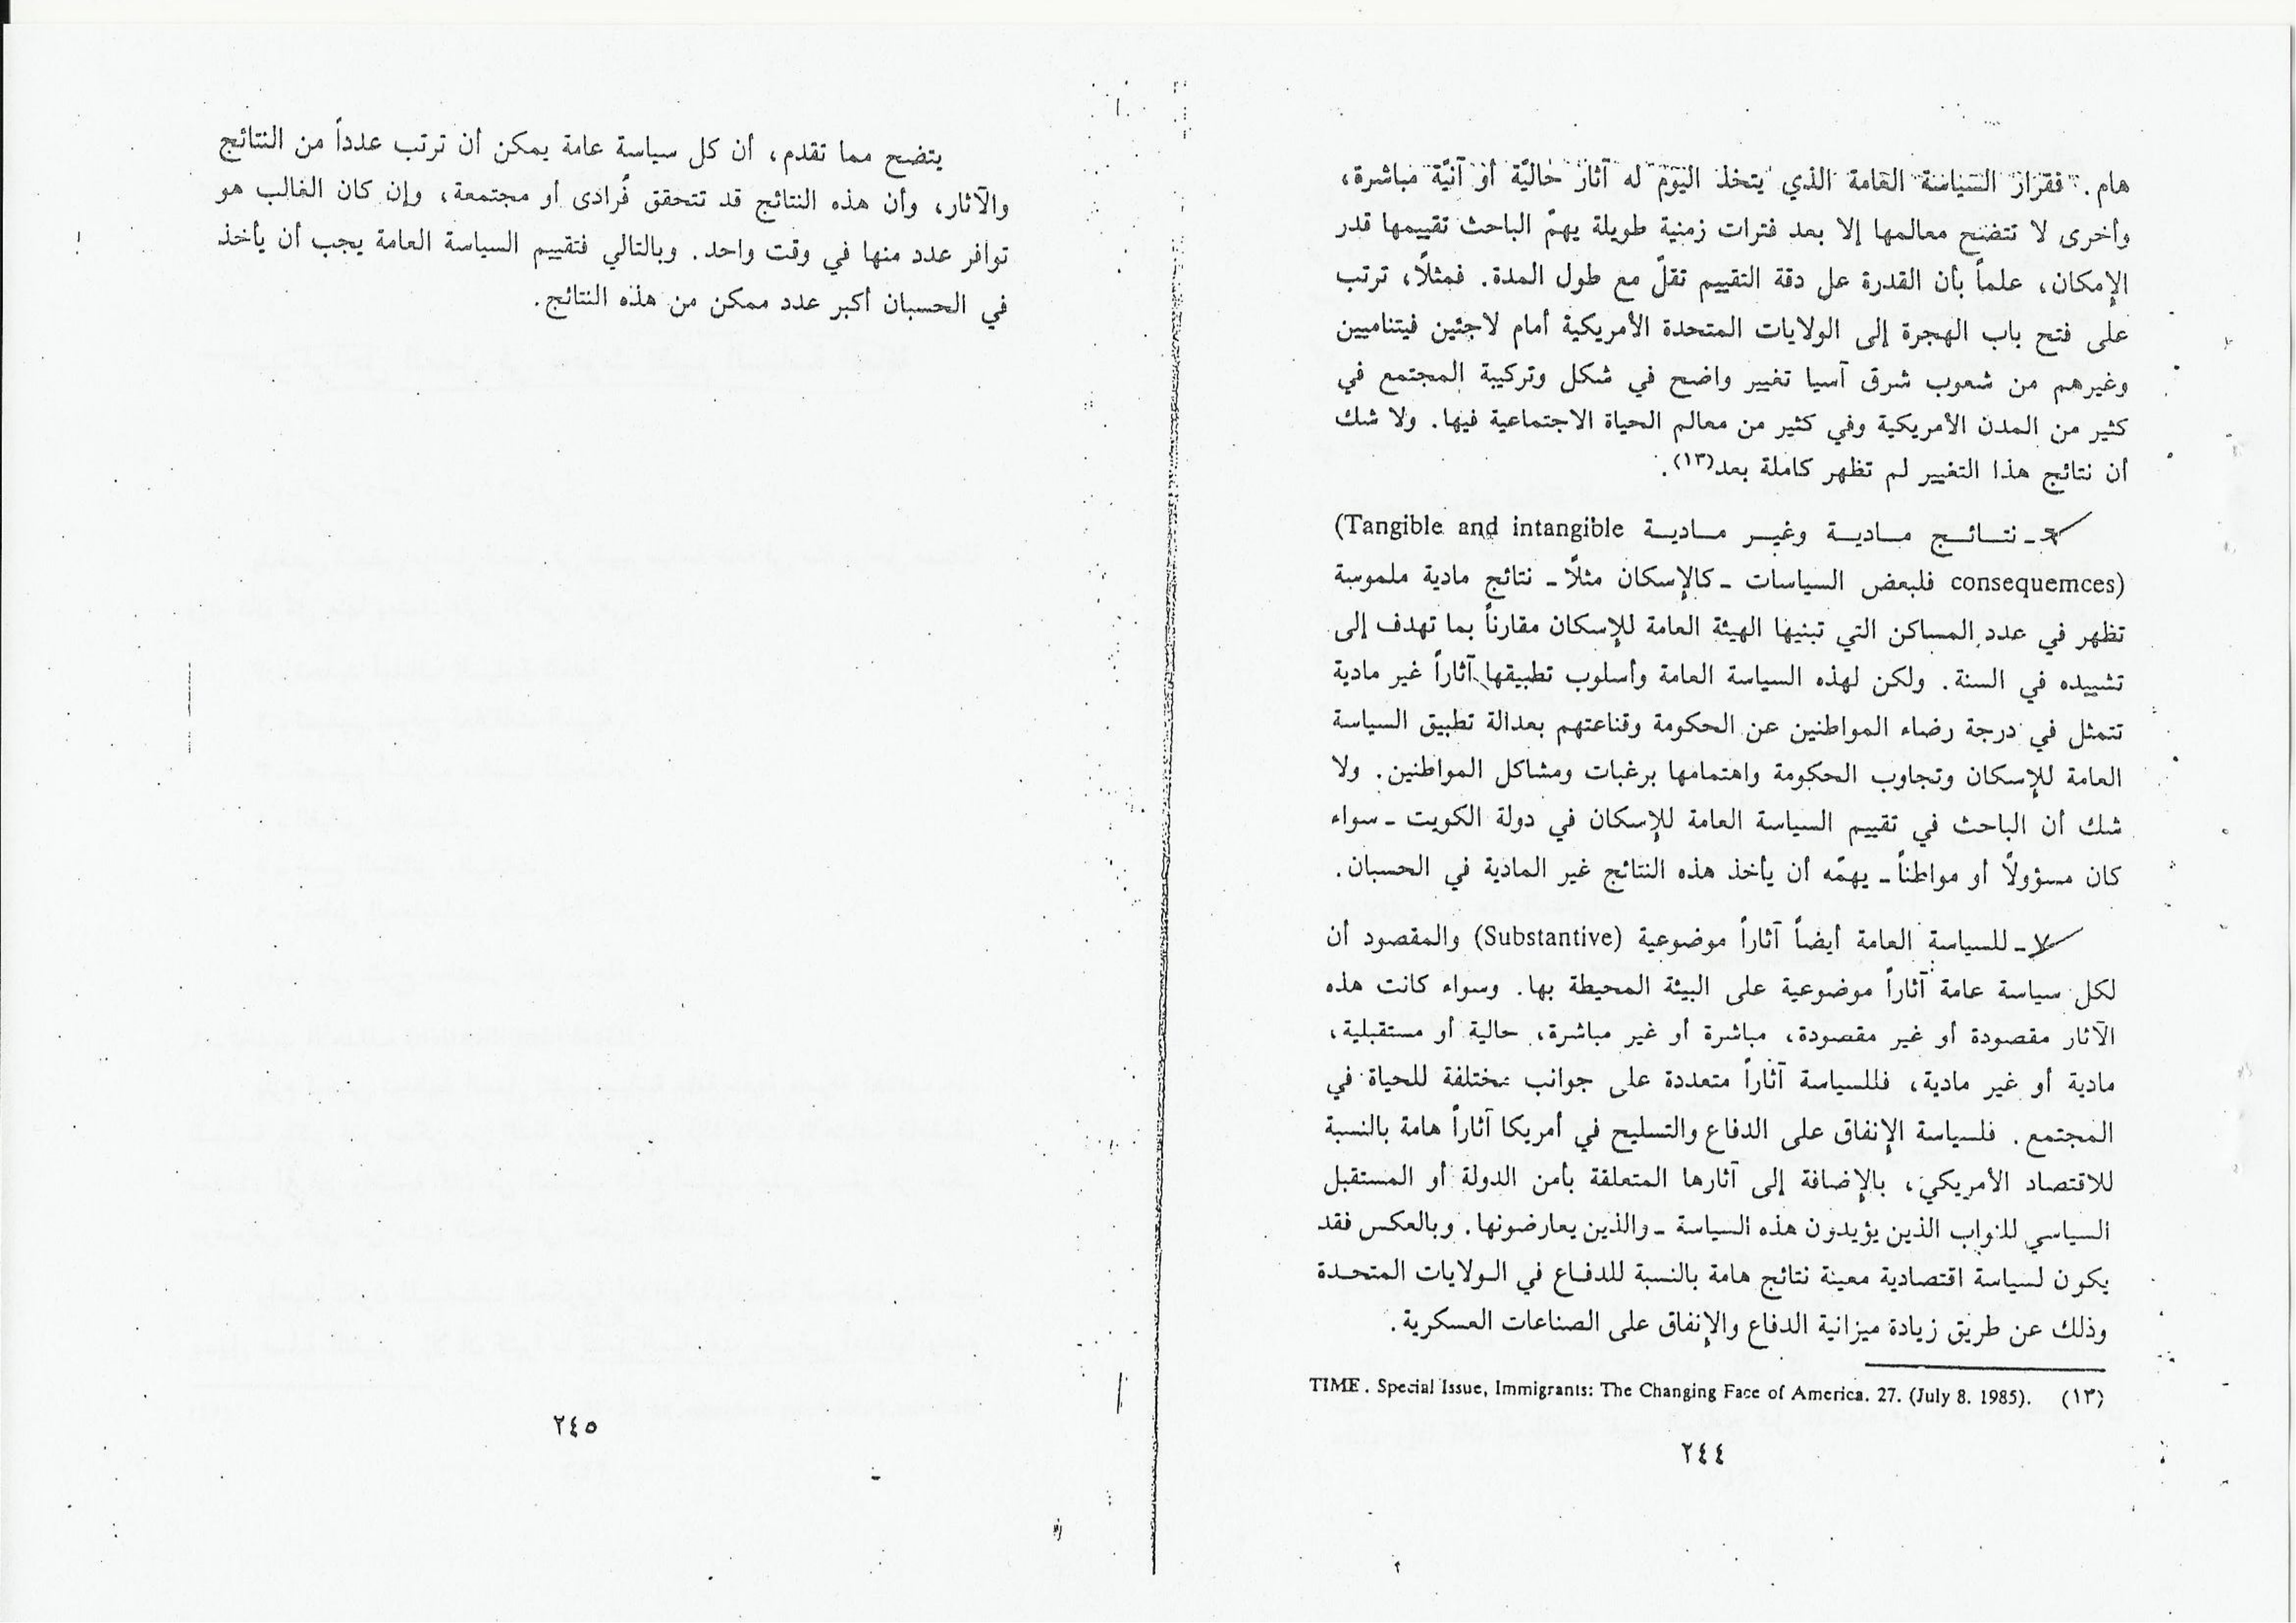 هام. فقرار السياسة العامة الذي يتخذ اليوم له آثار حاليّة أو آنيّة مباشرة،
وأخرى لا تتضح معالمها إلا بعد فترات زمنية طويلة يهمّ الباحث تقييمها قدر
الإمكان، علماً بأن القدرة عل دقة التقييم تقلّ مع طول المدة. فمثلاً، ترتب
على فتح باب الهجرة إلى الولايات المتحدة الأمريكية أمام لاجئين فيتناميين
وغيرهم من شعوب شرق آسيا تغيير واضح في شكل وتركيبة المجتمع في
كثير من المدن الأمريكية وفي كثير من معالم الحياة الاجتماعية فيها. ولا شك
أن نتائج هذا التغيير لم تظهر كاملة بعد(١٣).
٦ـ نتـائـج مـاديـة وغيـر مـاديـة (Tangible and intangible
consequemces) فلبعض السياسات ـ كالإسكان مثلاً ـ نتائج مادية ملموسة
تظهر في عدد المساكن التي تبنيها الهيئة العامة للإسكان مقارناً بما تهدف إلى
تشييده في السنة. ولكن لهذه السياسة العامة وأسلوب تطبيقها آثاراً غير مادية
تتمثل في درجة رضاء المواطنين عن الحكومة وقناعتهم بعدالة تطبيق السياسة
العامة للإسكان وتجاوب الحكومة واهتمامها برغبات ومشاكل المواطنين. ولا
شك أن الباحث في تقييم السياسة العامة للإسكان في دولة الكويت ـ سواء
كان مسؤولاً أو مواطناً ـ يهمّه أن يأخذ هذه النتائج غير المادية في الحسبان.
٧ـ للسياسة العامة أيضاً آثاراً موضوعية (Substantive) والمقصود أن
لكل سياسة عامة آثاراً موضوعية على البيئة المحيطة بها. وسواء كانت هذه
الآثار مقصودة أو غير مقصودة، مباشرة أو غير مباشرة، حالية أو مستقبلية،
مادية أو غير مادية، فللسياسة آثاراً متعددة على جوانب مختلفة للحياة في
المجتمع. فلسياسة الإنفاق على الدفاع والتسليح في أمريكا آثاراً هامة بالنسبة
للاقتصاد الأمريكي، بالإضافة إلى آثارها المتعلقة بأمن الدولة أو المستقبل
السياسي للنواب الذين يؤيدون هذه السياسة ـ والذين يعارضونها. وبالعكس فقد
يكون لسياسة اقتصادية معينة نتائج هامة بالنسبة للدفـاع في الـولايات المتحـدة
وذلك عن طريق زيادة ميزانية الدفاع والإنفاق على الصناعات العسكرية.
(١٣) TIME. Special Issue, Immigrants: The Changing Face of America. 27. (July 8. 1985).
٢٤٤
يتضح مما تقدم، أن كل سياسة عامة يمكن أن ترتب عدداً من النتائج
والآثار، وأن هذه النتائج قد تتحقق فُرادى أو مجتمعة، وإن كان الغالب هو
توافر عدد منها في وقت واحد. وبالتالي فتقييم السياسة العامة يجب أن يأخذ
في الحسبان أكبر عدد ممكن من هذه النتائج.
٢٤٥